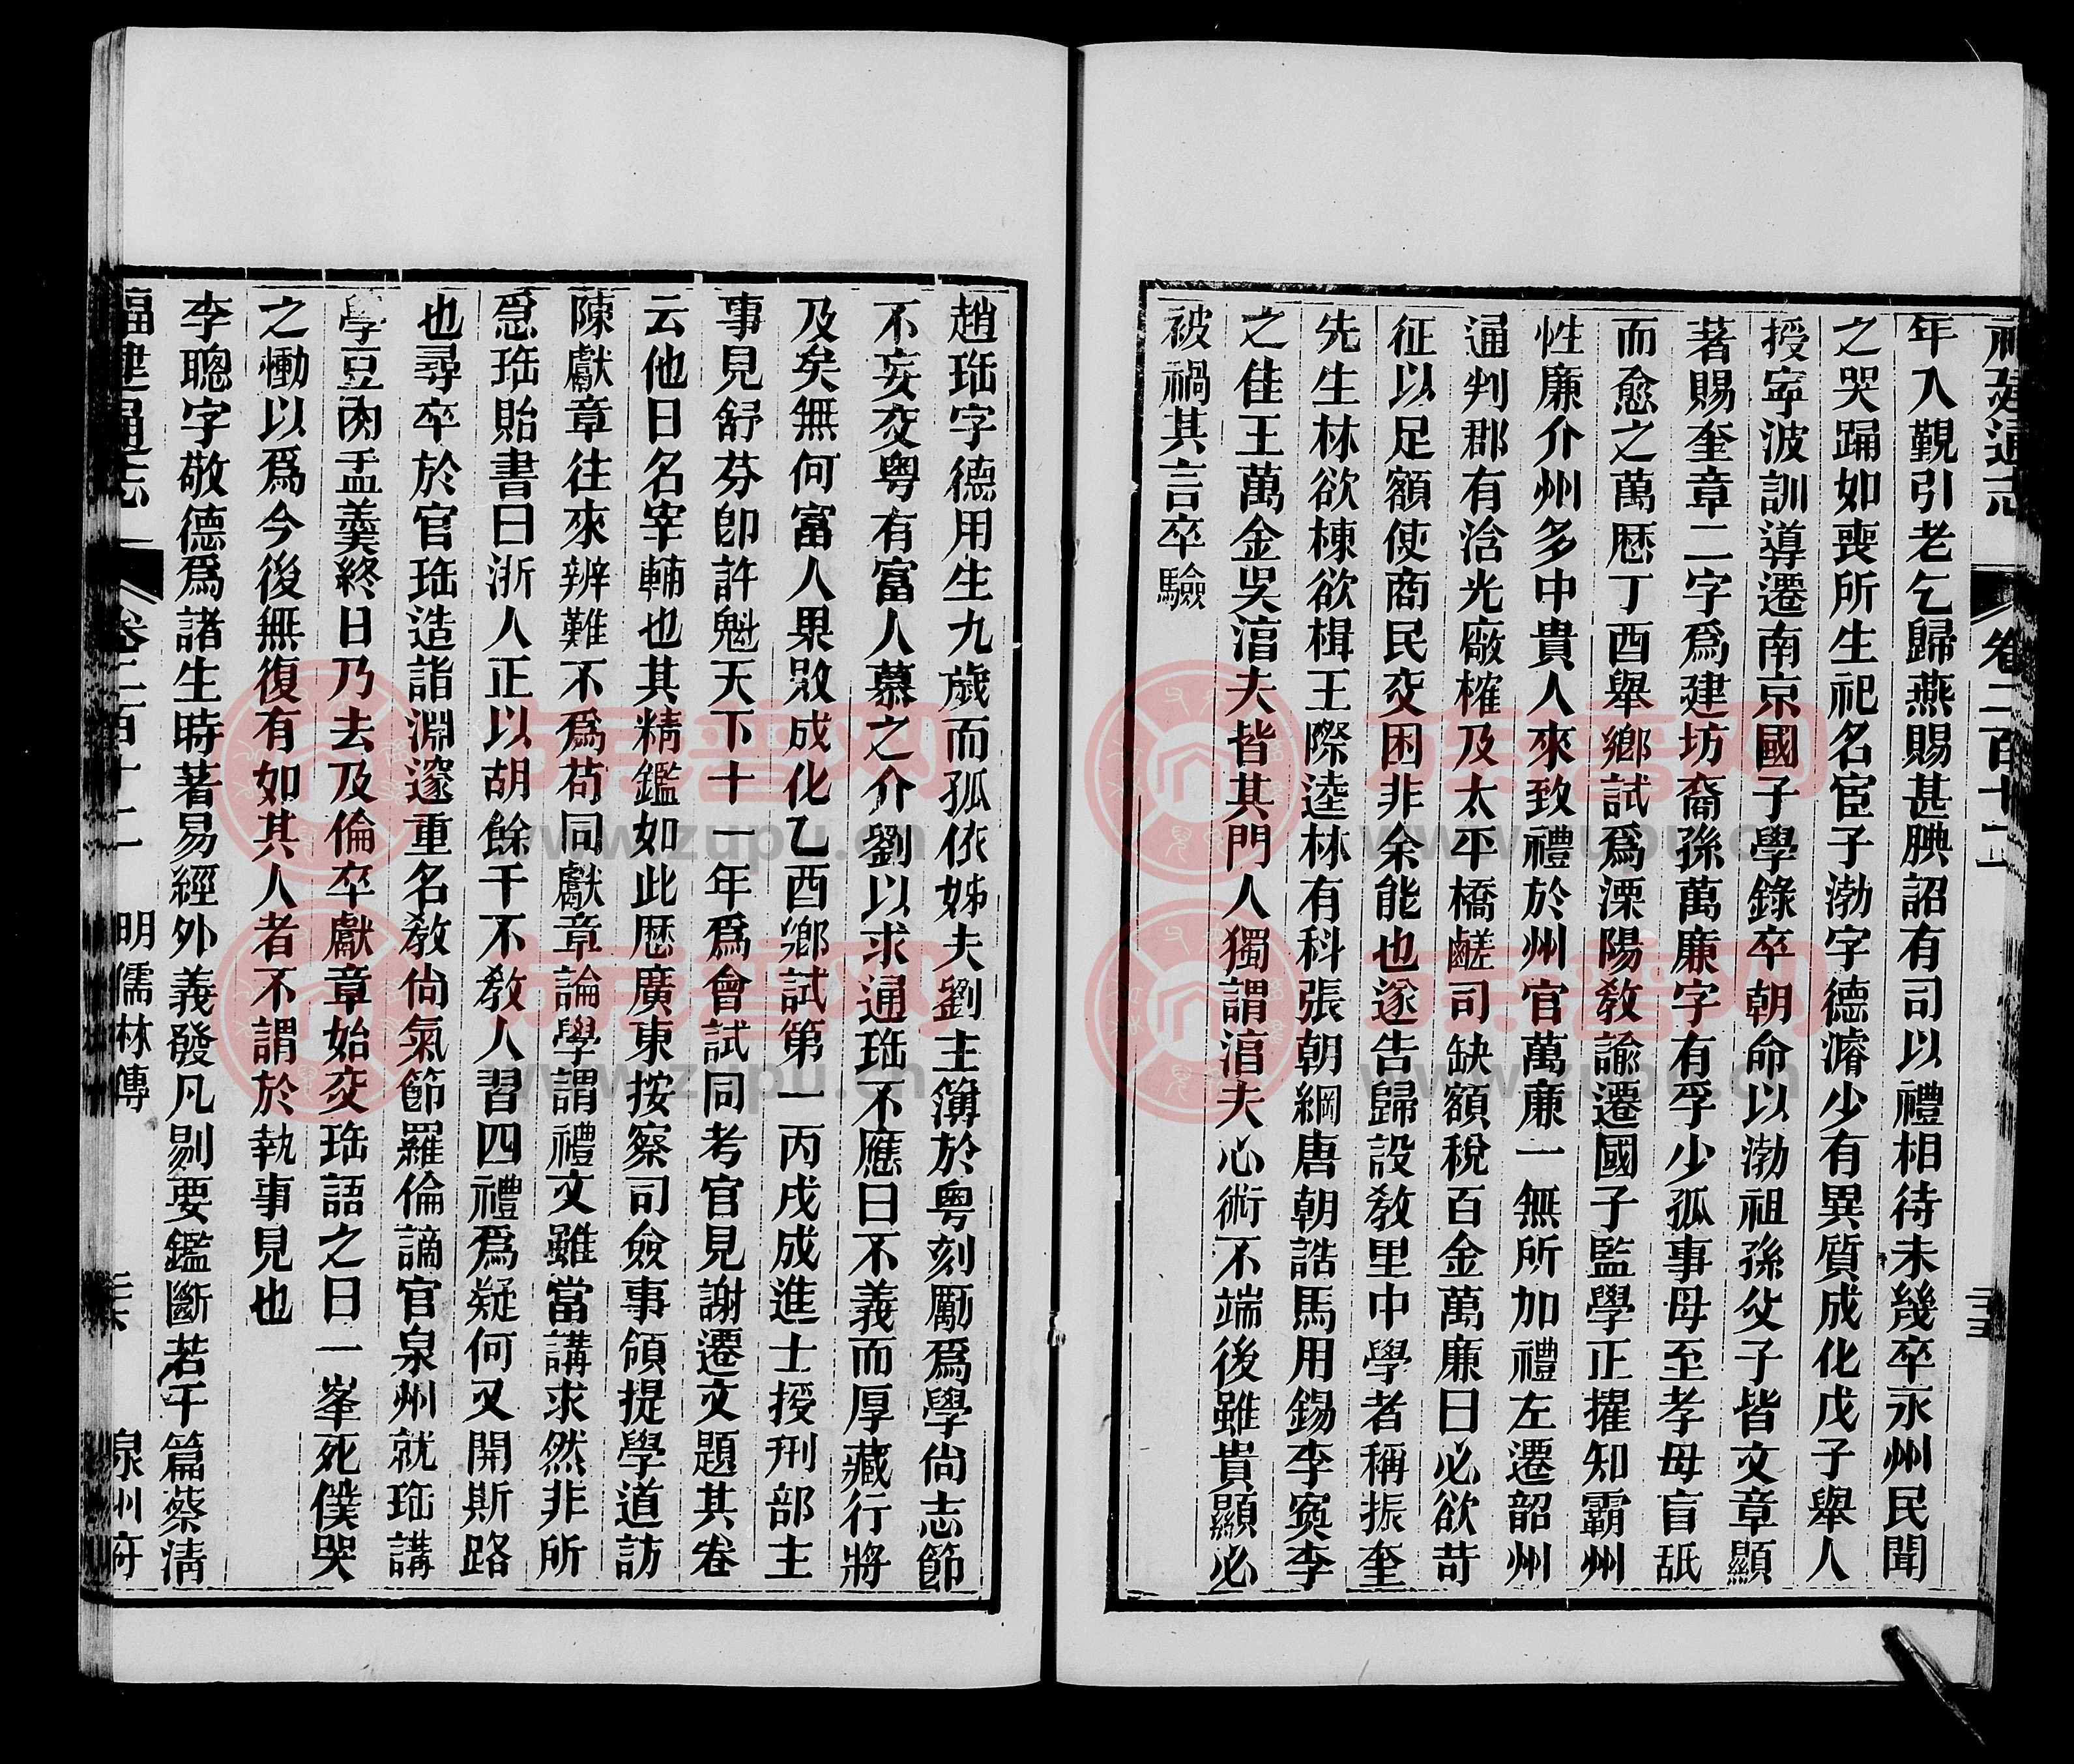 福建通志 卷二百十二 二十五
年入覲引老乞歸燕賜甚腆詔有司以禮相待未幾卒永州民聞
之哭踊如喪所生祀名宦子渤字德濬少有異質成化戊子舉人
授寧波訓導遷南京國子學錄卒朝命以渤祖孫父子皆文章顯
著賜奎章二字爲建坊裔孫萬廉字有孚少孤事母至孝母盲舐
而愈之萬厯丁酉舉鄉試爲溧陽敎諭遷國子監學正擢知霸州
性廉介州多中貴人來致禮於州官萬廉一無所加禮左遷韶州
通判郡有浛光廠榷及太平橋鹺司缺額稅百金萬廉曰必欲苛
征以足額使商民交困非余能也遂告歸設敎里中學者稱振奎
先生林欲棟欲楫王際逵林有科張朝綱唐朝誥馬用錫李寅李
之佳王萬金吳淯夫皆其門人獨謂淯夫心術不端後雖貴顯必
被禍其言卒驗
趙珤字德用生九歲而孤依姊夫劉主簿於粤刻勵爲學尙志節
不妄交粤有富人慕之介劉以求通珤不應曰不義而厚藏行將
及矣無何富人果敗成化乙酉鄉試第一丙戌成進士授刑部主
事見舒芬卽許魁天下十一年爲會試同考官見謝遷文題其卷
云他日名宰輔也其精鑑如此厯廣東按察司僉事領提學道訪
陳獻章往來辨難不爲苟同獻章論學謂禮文雖當講求然非所
急珤貽書曰浙人正以胡餘干不敎人習四禮爲疑何又開斯路
也尋卒於官珤造詣淵邃重名敎尙氣節羅倫謫官泉州就珤講
學豆肉盂羮終日乃去及倫卒獻章始交珤語之曰一峯死僕哭
之慟以爲今後無復有如其人者不謂於執事見也
李聰字敬德爲諸生時著易經外義發凡剔要鑑斷若干篇蔡淸
福建通志 卷二百十二 明儒林傳 二十六 泉州府